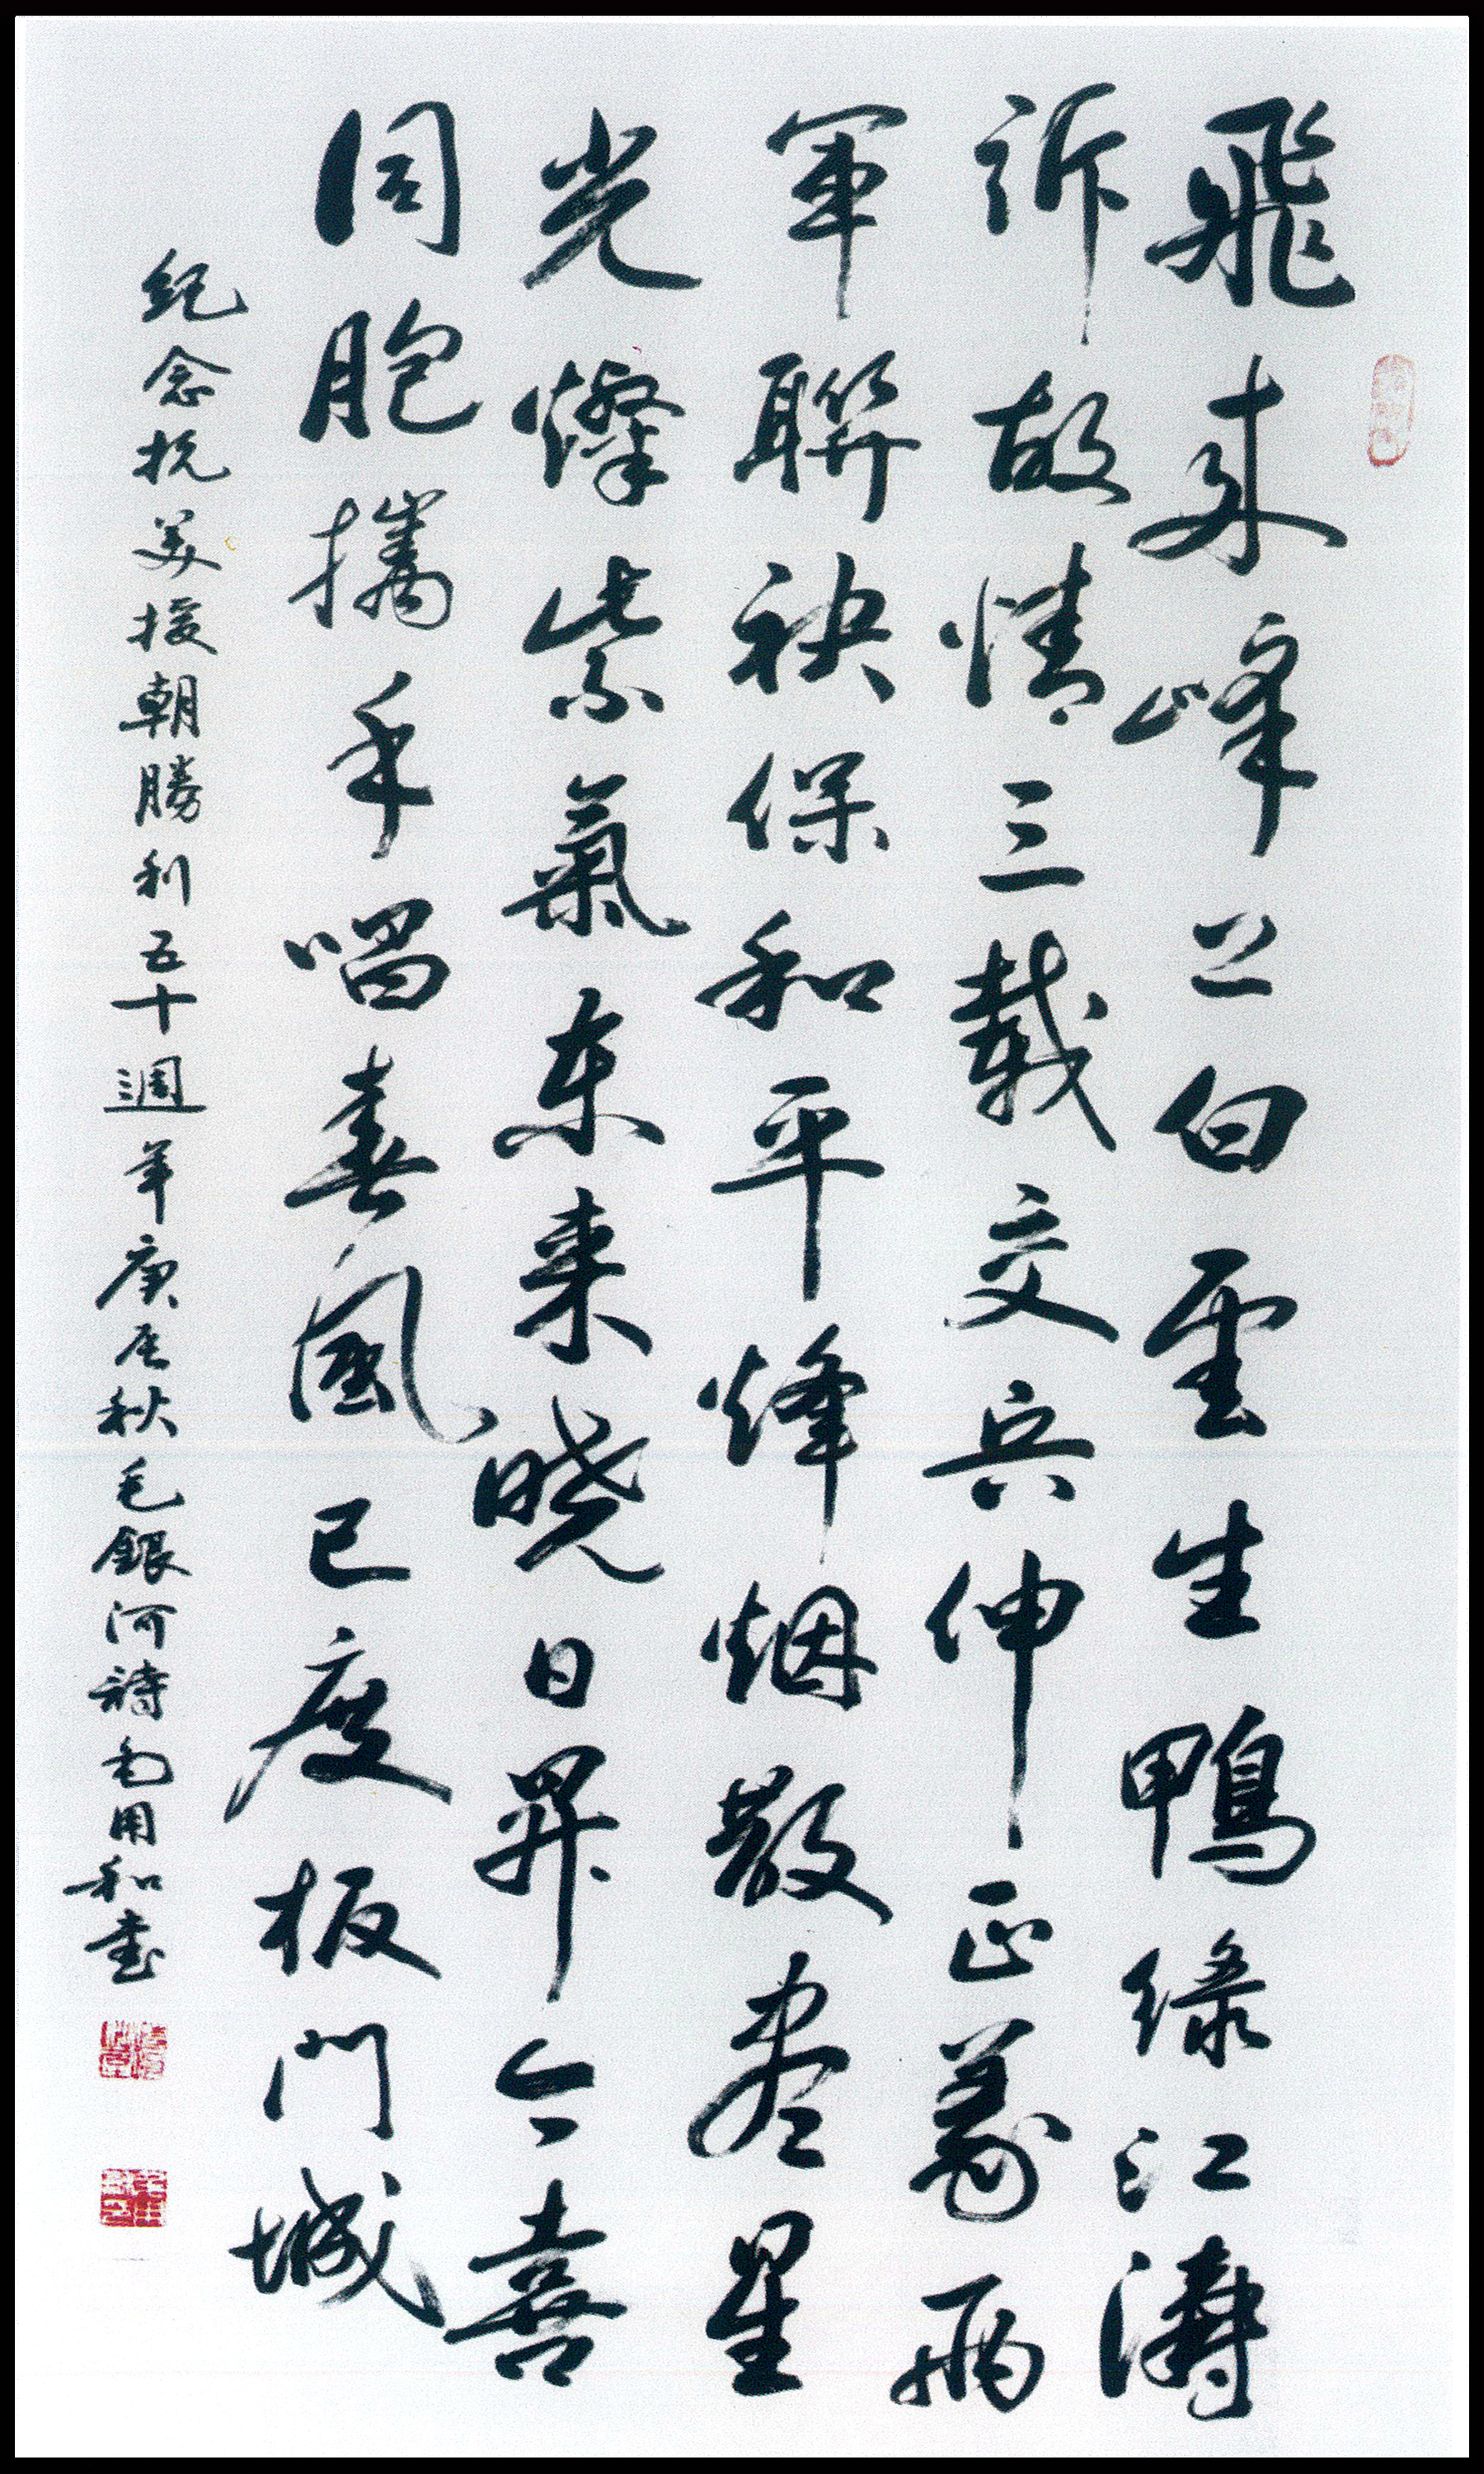 飛来峰上白雲生鴨綠江濤
訴故情三載交兵伸正義兩
軍聯袂保和平烽烟散盡星
光燦紫氣东来晓日昇今喜
同胞攜手唱春風已度板門城
纪念抗美援朝勝利五十週年庚辰秋毛銀河詩 用和書